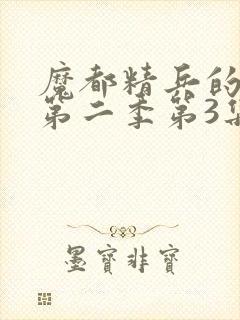 魔都精兵的
第二季第3集
墨寶非寶